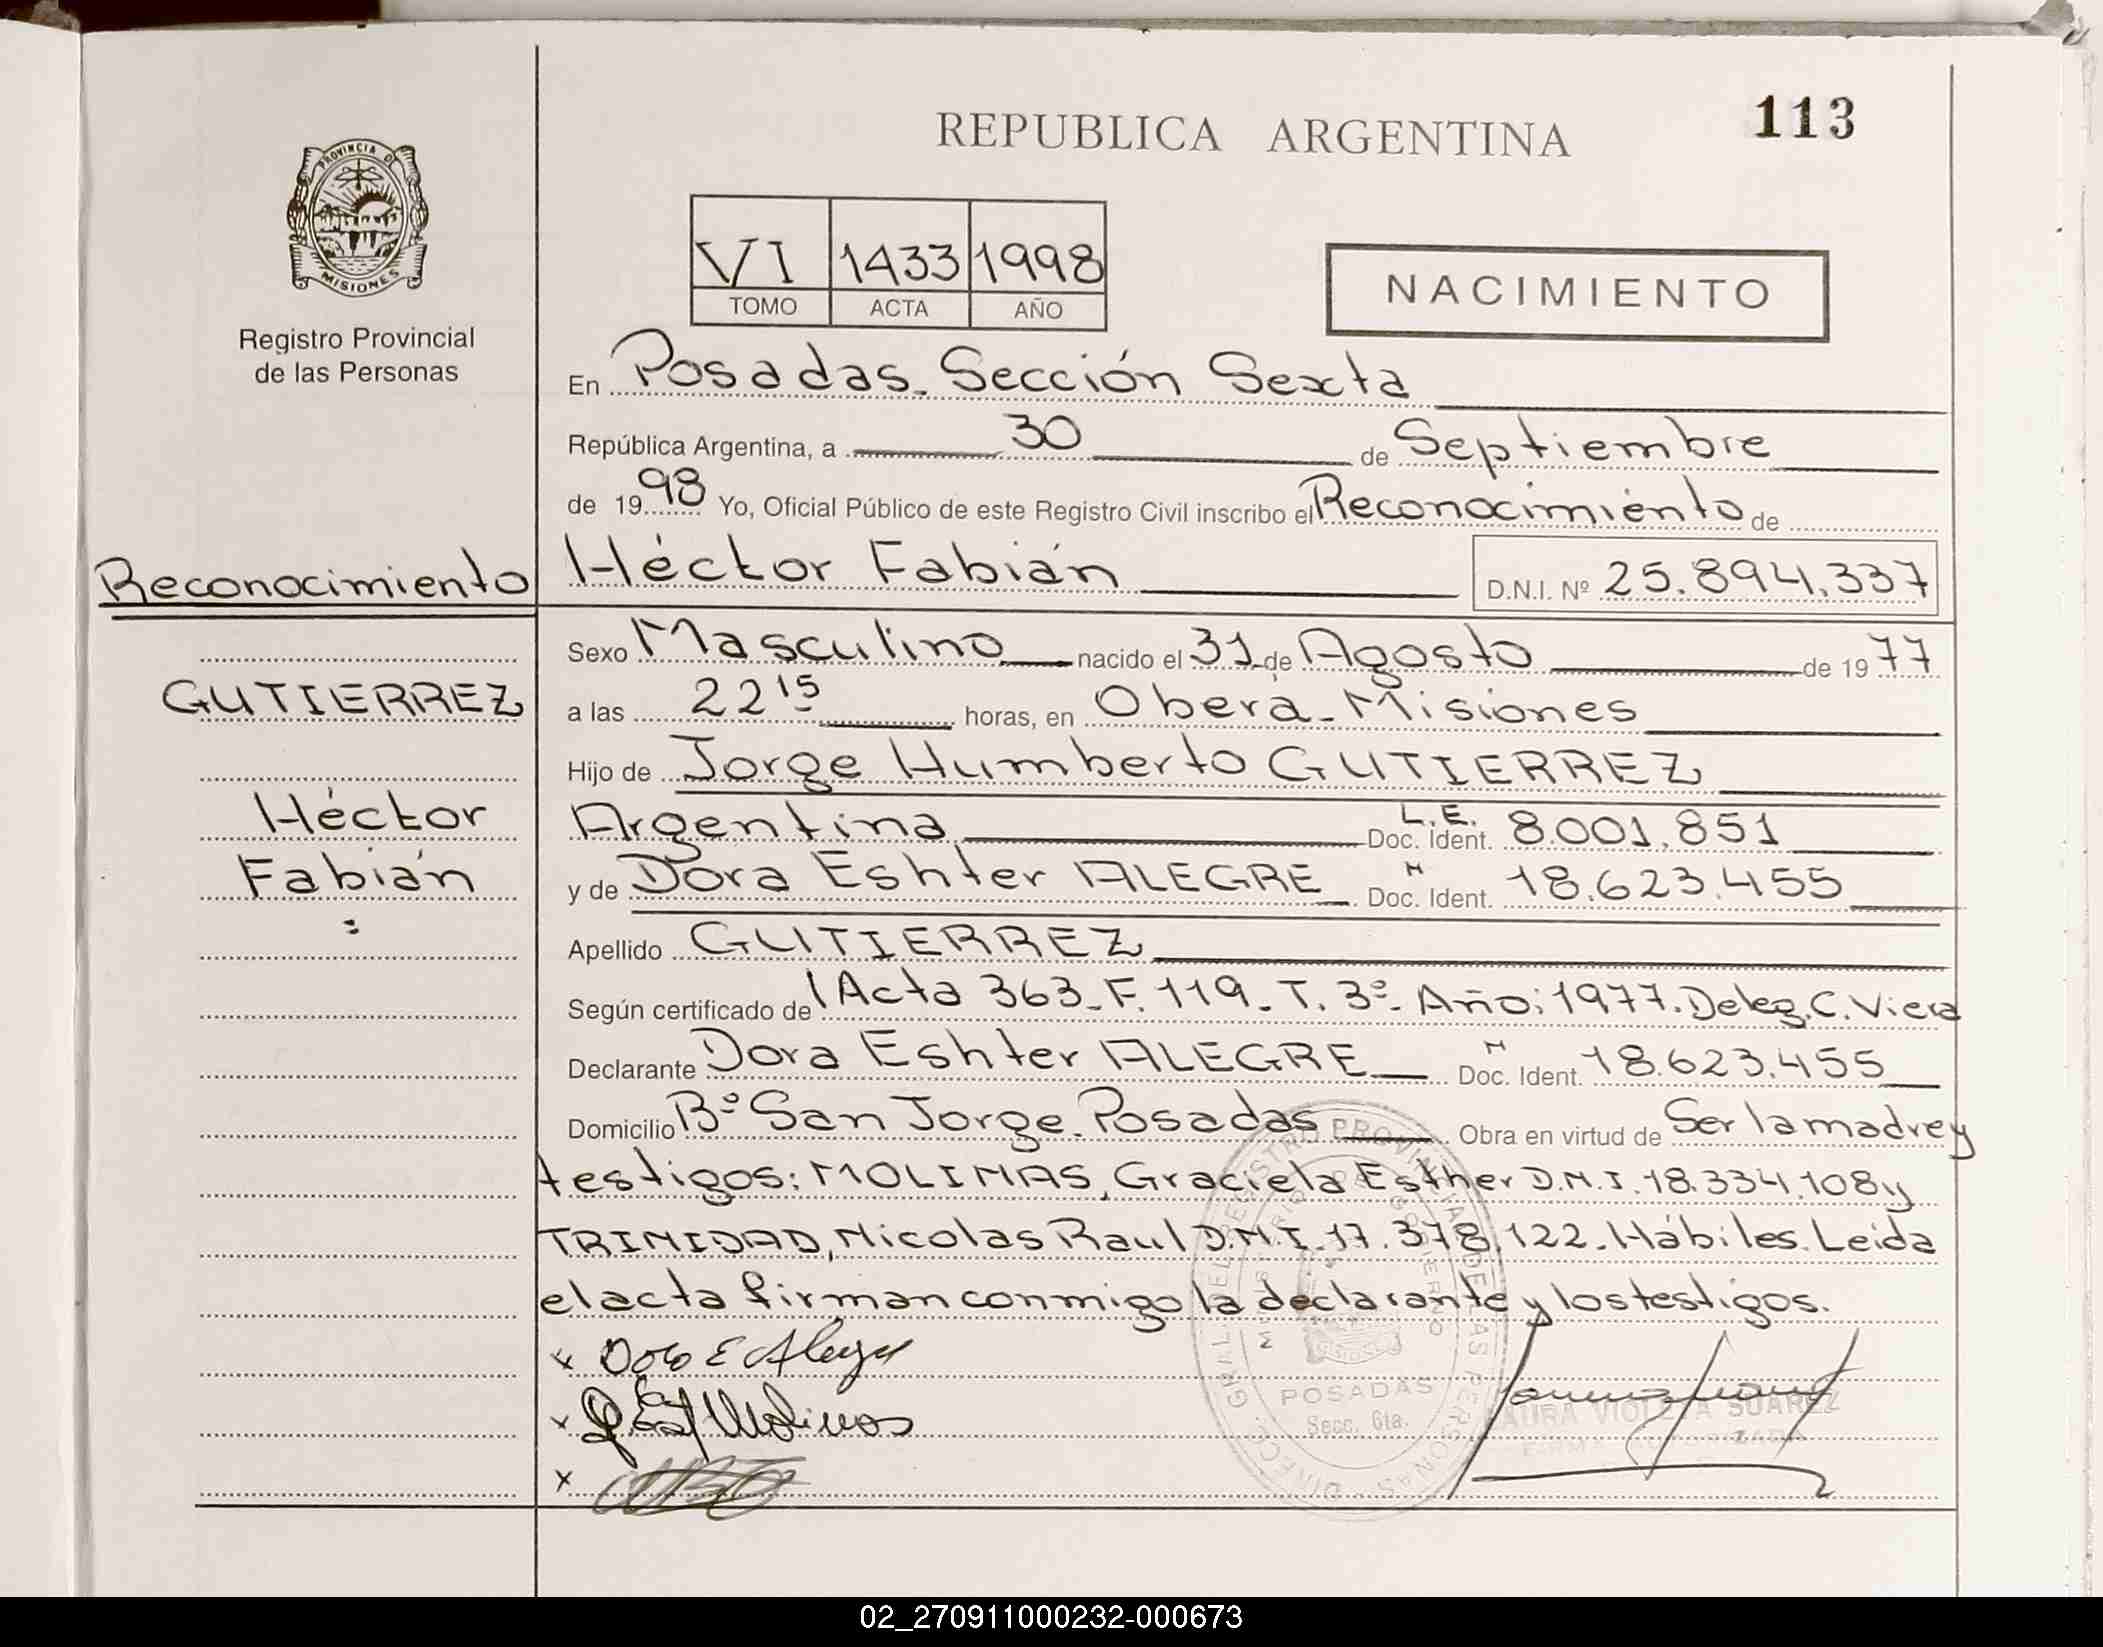 113
REPUBLICA ARGENTINA
PROVINCIA D
MISIONES
Registro Provincial
de las Personas
VI 1433 1998
TOMO ACTA AÑO
NACIMIENTO
En Posadas. Sección Sexta
República Argentina, a 30 de Septiembre
de 1998 Yo, Oficial Público de este Registro Civil inscribo el Reconocimiento de
Reconocimiento
Héctor Fabián D.N.I. Nº 25.894.337
Sexo Masculino nacido el 31 de Agosto de 1977
GUTIERREZ
a las 22 15 horas, en Oberá - Misiones
Hijo de Jorge Humberto GUTIERREZ
Héctor
Argentina L.E. Doc. Ident. 8.001.851
Fabián
y de Dora Eshter ALEGRE N Doc. Ident. 18.623.455
Apellido GUTIERREZ
Según certificado de l Acta 363_F.119_T.3º_Año:1977.Deleg.C.Viera
Declarante Dora Eshter ALEGRE N Doc. Ident. 18.623.455
Domicilio Bº San Jorge. Posadas Obra en virtud de Ser la madre y
testigos: MOLINAS, Graciela Esther D.N.I. 18.334.108 y
TRINIDAD, Nicolas Raul D.N.I. 17.378.122. Hábiles. Leida
el acta firman conmigo la declarante y los testigos.
x Dora E Alegre
x Molinas
x
DIRECC. GRAL. DEL REGISTRO PROVINCIAL DE LAS PERSONAS
POSADAS
Secc. 6ta.
LAURA VIOLETA SUAREZ
FIRMA AUTORIZADA
02_270911000232-000673